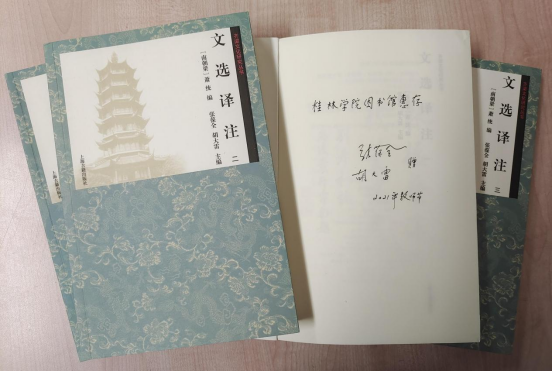 文选译注 二
[南朝梁]萧统 编
张葆全 胡大雷 主编
上海古籍出版社
桂林学院图书馆惠存
张葆全
胡大雷 赠
2021年教师节
文选译注 三
[南朝梁]萧统 编
张葆全 胡大雷 主编
上海古籍出版社